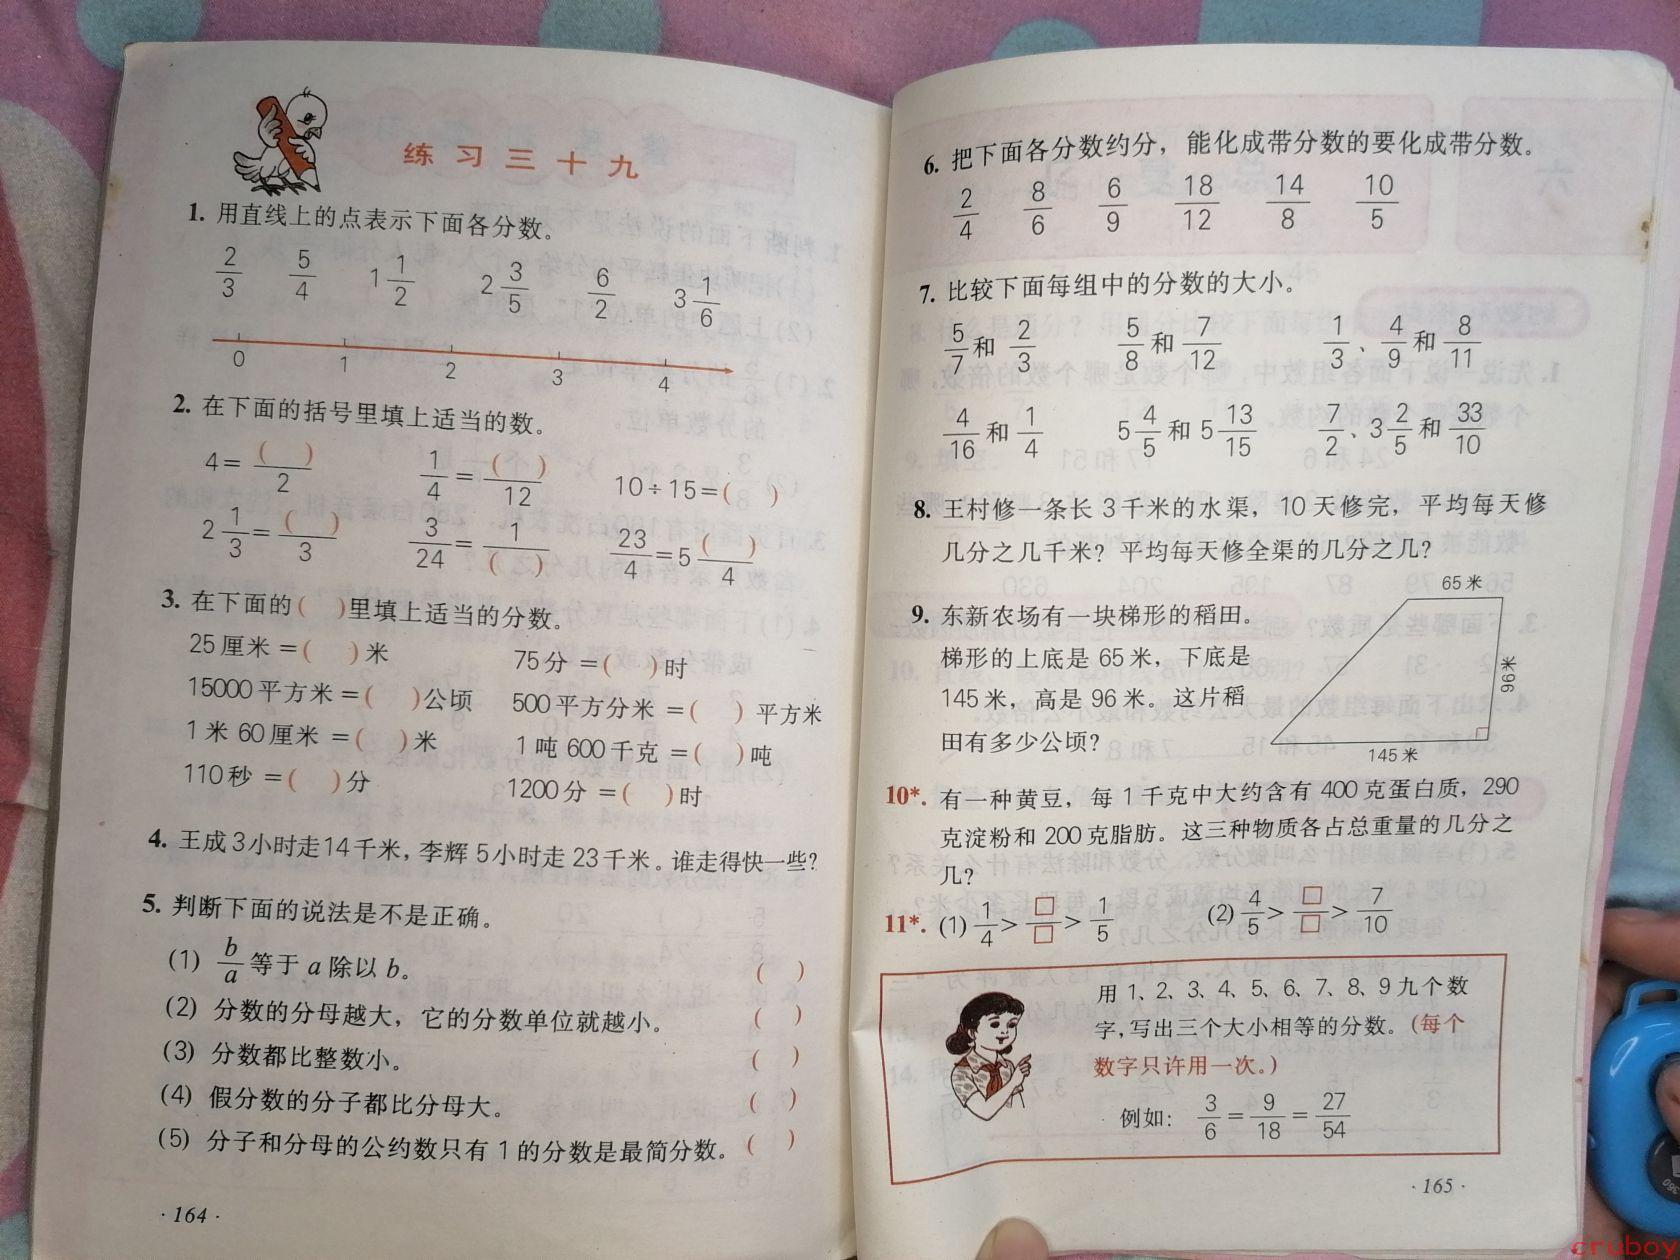 练习三十九
1. 用直线上的点表示下面各分数。
2/3 5/4 1 1/2 2 3/5 6/2 3 1/6
0 1 2 3 4
2. 在下面的括号里填上适当的数。
4=( )/2 1/4=( )/12 10÷15=( )
2 1/3=( )/3 3/24=1/( ) 23/4=5( )/4
3. 在下面的( )里填上适当的分数。
25厘米=( )米 75分=( )时
15000平方米=( )公顷 500平方分米=( )平方米
1米60厘米=( )米 1吨600千克=( )吨
110秒=( )分 1200分=( )时
4. 王成3小时走14千米,李辉5小时走23千米。谁走得快一些?
5. 判断下面的说法是不是正确。
(1) b/a等于a除以b。 ( )
(2) 分数的分母越大,它的分数单位就越小。 ( )
(3) 分数都比整数小。 ( )
(4) 假分数的分子都比分母大。 ( )
(5) 分子和分母的公约数只有1的分数是最简分数。 ( )
·164·
6. 把下面各分数约分,能化成带分数的要化成带分数。
2/4 8/6 6/9 18/12 14/8 10/5
7. 比较下面每组中的分数的大小。
5/7和2/3 5/8和7/12 1/3、4/9和8/11
4/16和1/4 5 4/5和5 13/15 7/2、3 2/5和33/10
8. 王村修一条长3千米的水渠,10天修完,平均每天修
几分之几千米?平均每天修全渠的几分之几?
9. 东新农场有一块梯形的稻田。
梯形的上底是65米,下底是
145米,高是96米。这片稻
田有多少公顷?
65米
96米
145米
10*. 有一种黄豆,每1千克中大约含有400克蛋白质,290
克淀粉和200克脂肪。这三种物质各占总重量的几分之
几?
11*. (1) 1/4>□/□>1/5 (2) 4/5>□/□>7/10
用1、2、3、4、5、6、7、8、9九个数
字,写出三个大小相等的分数。(每个
数字只许用一次。)
例如: 3/6=9/18=27/54
·165·
360
cruboy